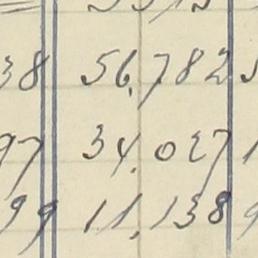 38 56,782 5
97 34,027
99 11,138 9